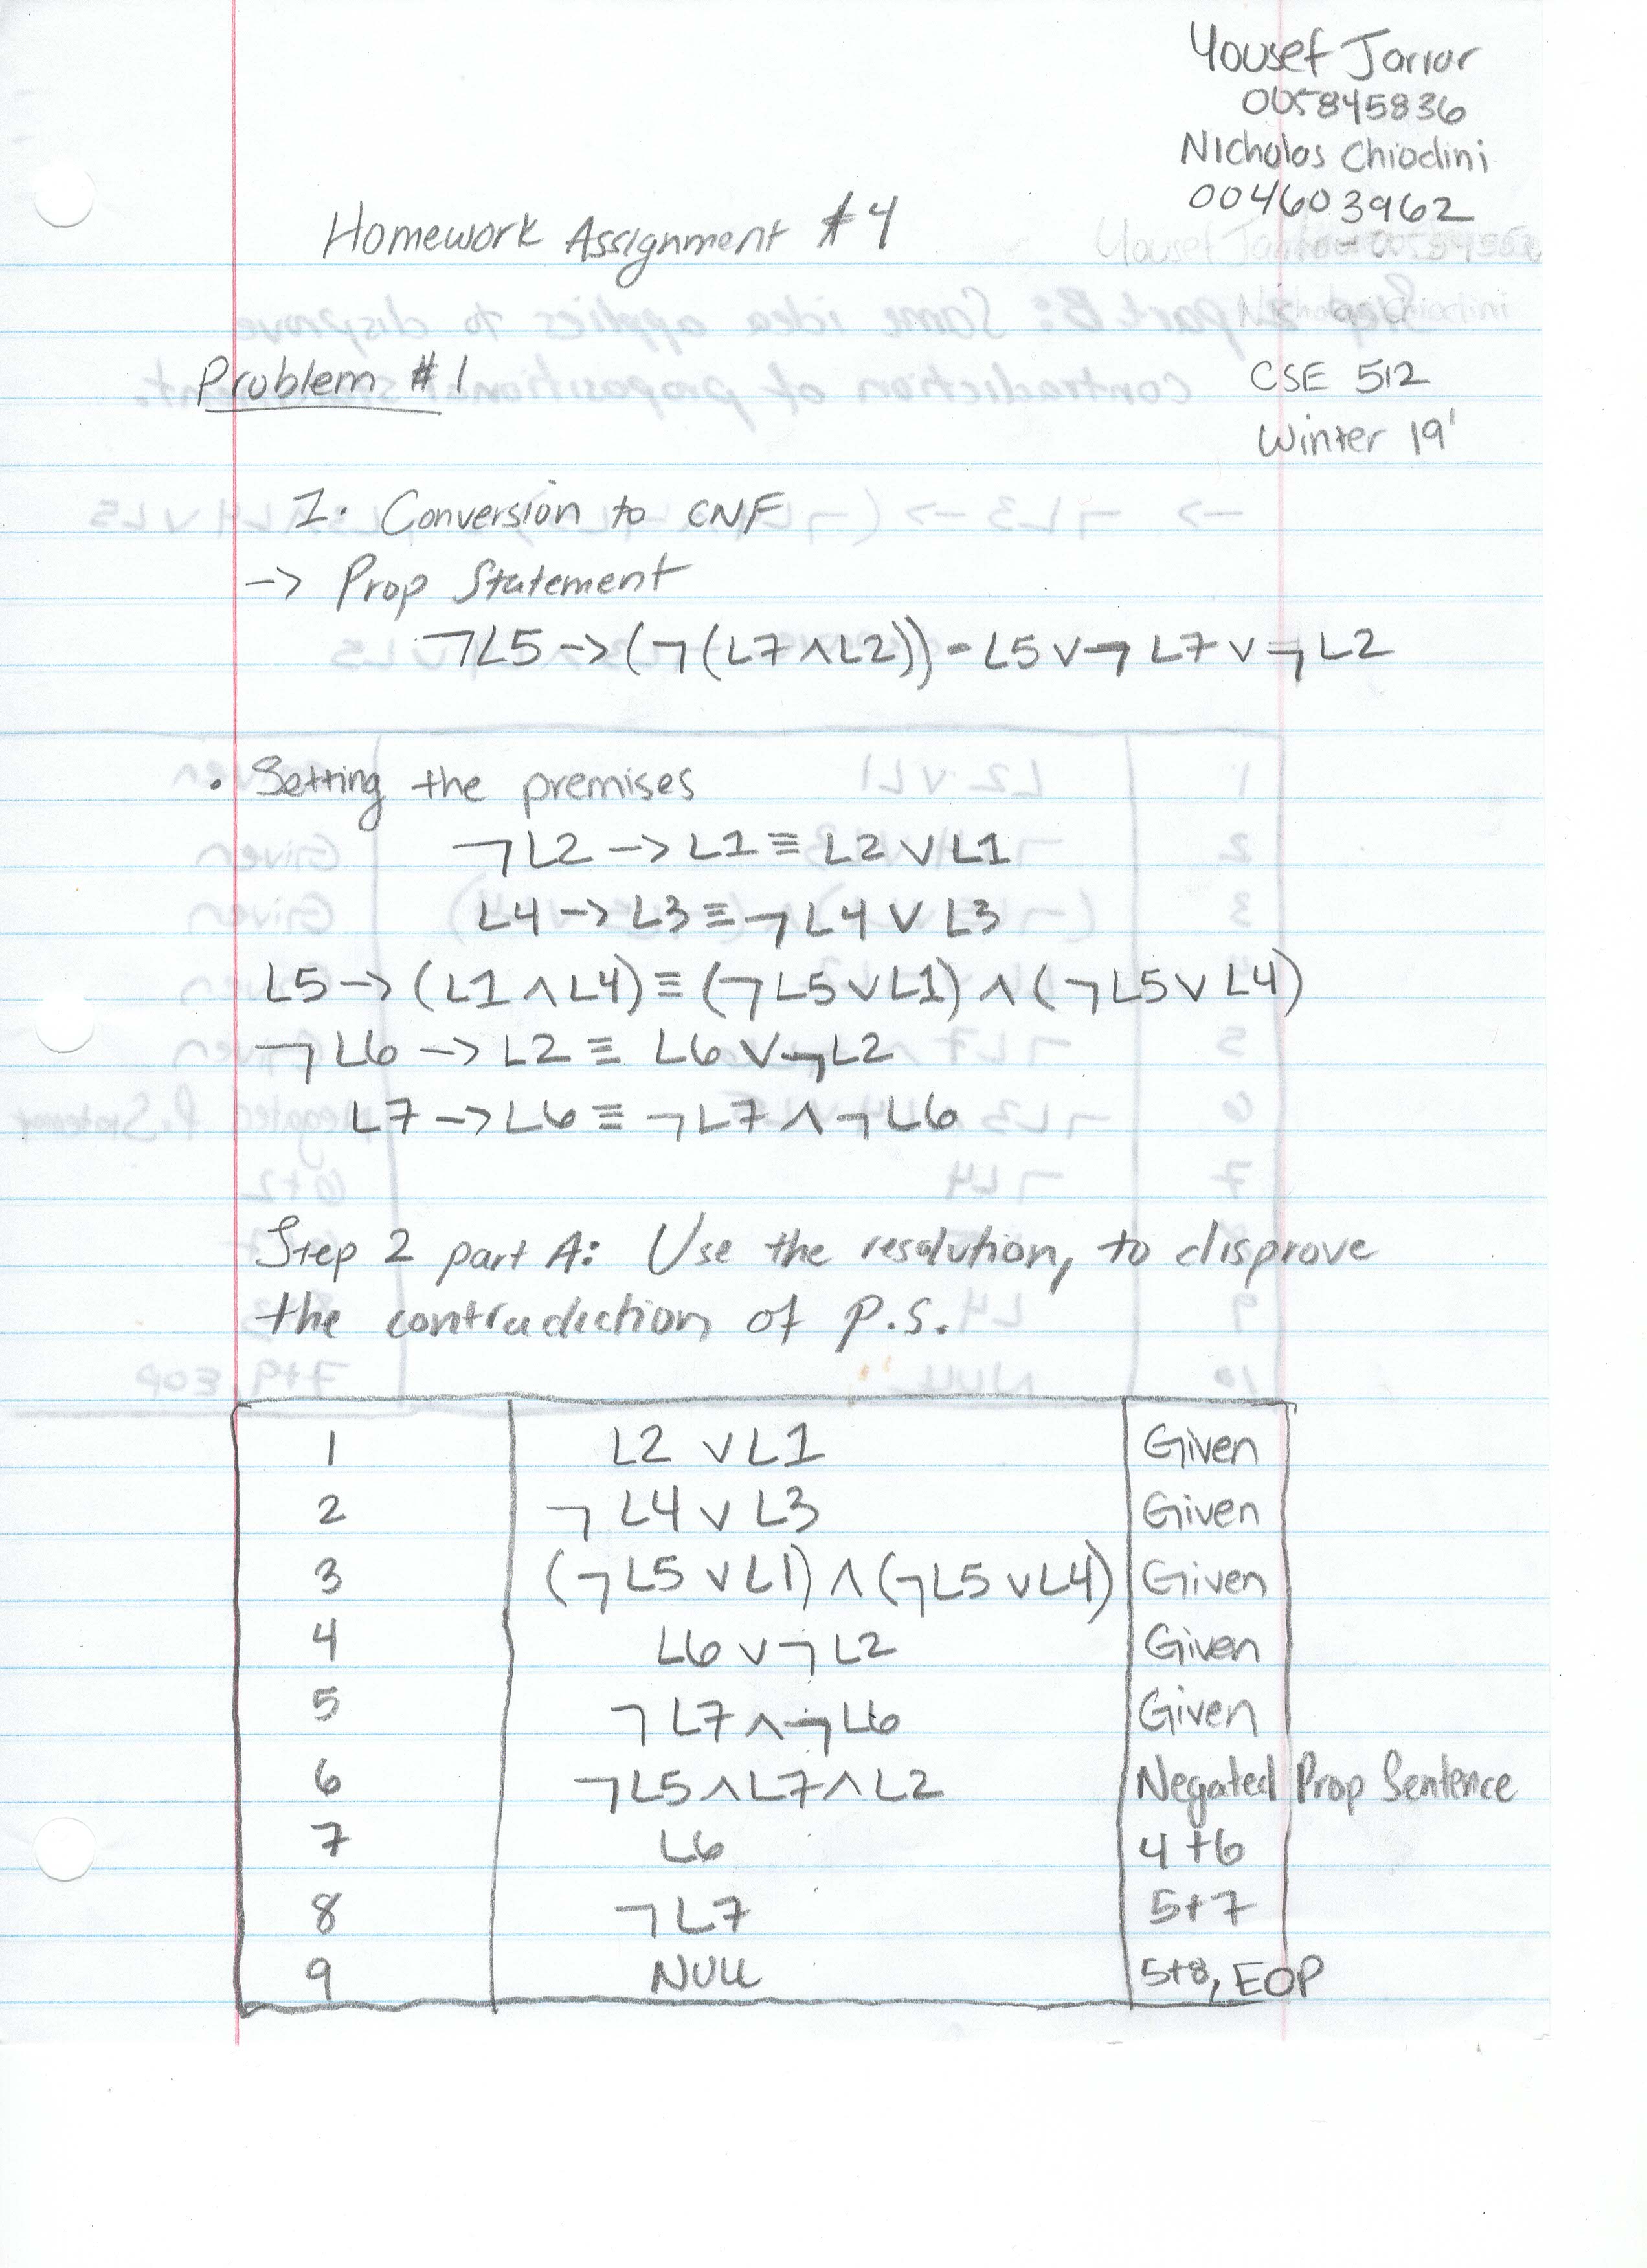 Yousef Jarrar
005845836
Nicholas Chiodini
004603962
Homework Assignment #4
Problem #1
CSE 512
Winter 19'
1. Conversion to CNF
-> Prop Statement
¬L5 -> (¬(L7 ∧ L2)) = L5 ∨ ¬L7 ∨ ¬L2
• Setting the premises
¬L2 -> L1 ≡ L2 ∨ L1
L4 -> L3 ≡ ¬L4 ∨ L3
L5 -> (L1 ∧ L4) ≡ (¬L5 ∨ L1) ∧ (¬L5 ∨ L4)
¬L6 -> L2 ≡ L6 ∨ ¬L2
L7 -> L6 ≡ ¬L7 ∧ ¬L6
Step 2 part A: Use the resolution, to disprove
the contradiction of P.S.
1 L2 ∨ L1 Given
2 ¬L4 ∨ L3 Given
3 (¬L5 ∨ L1) ∧ (¬L5 ∨ L4) Given
4 L6 ∨ ¬L2 Given
5 ¬L7 ∧ ¬L6 Given
6 ¬L5 ∧ L7 ∧ L2 Negated Prop Sentence
7 L6 4+6
8 ¬L7 5+7
9 NULL 5+8, EOP